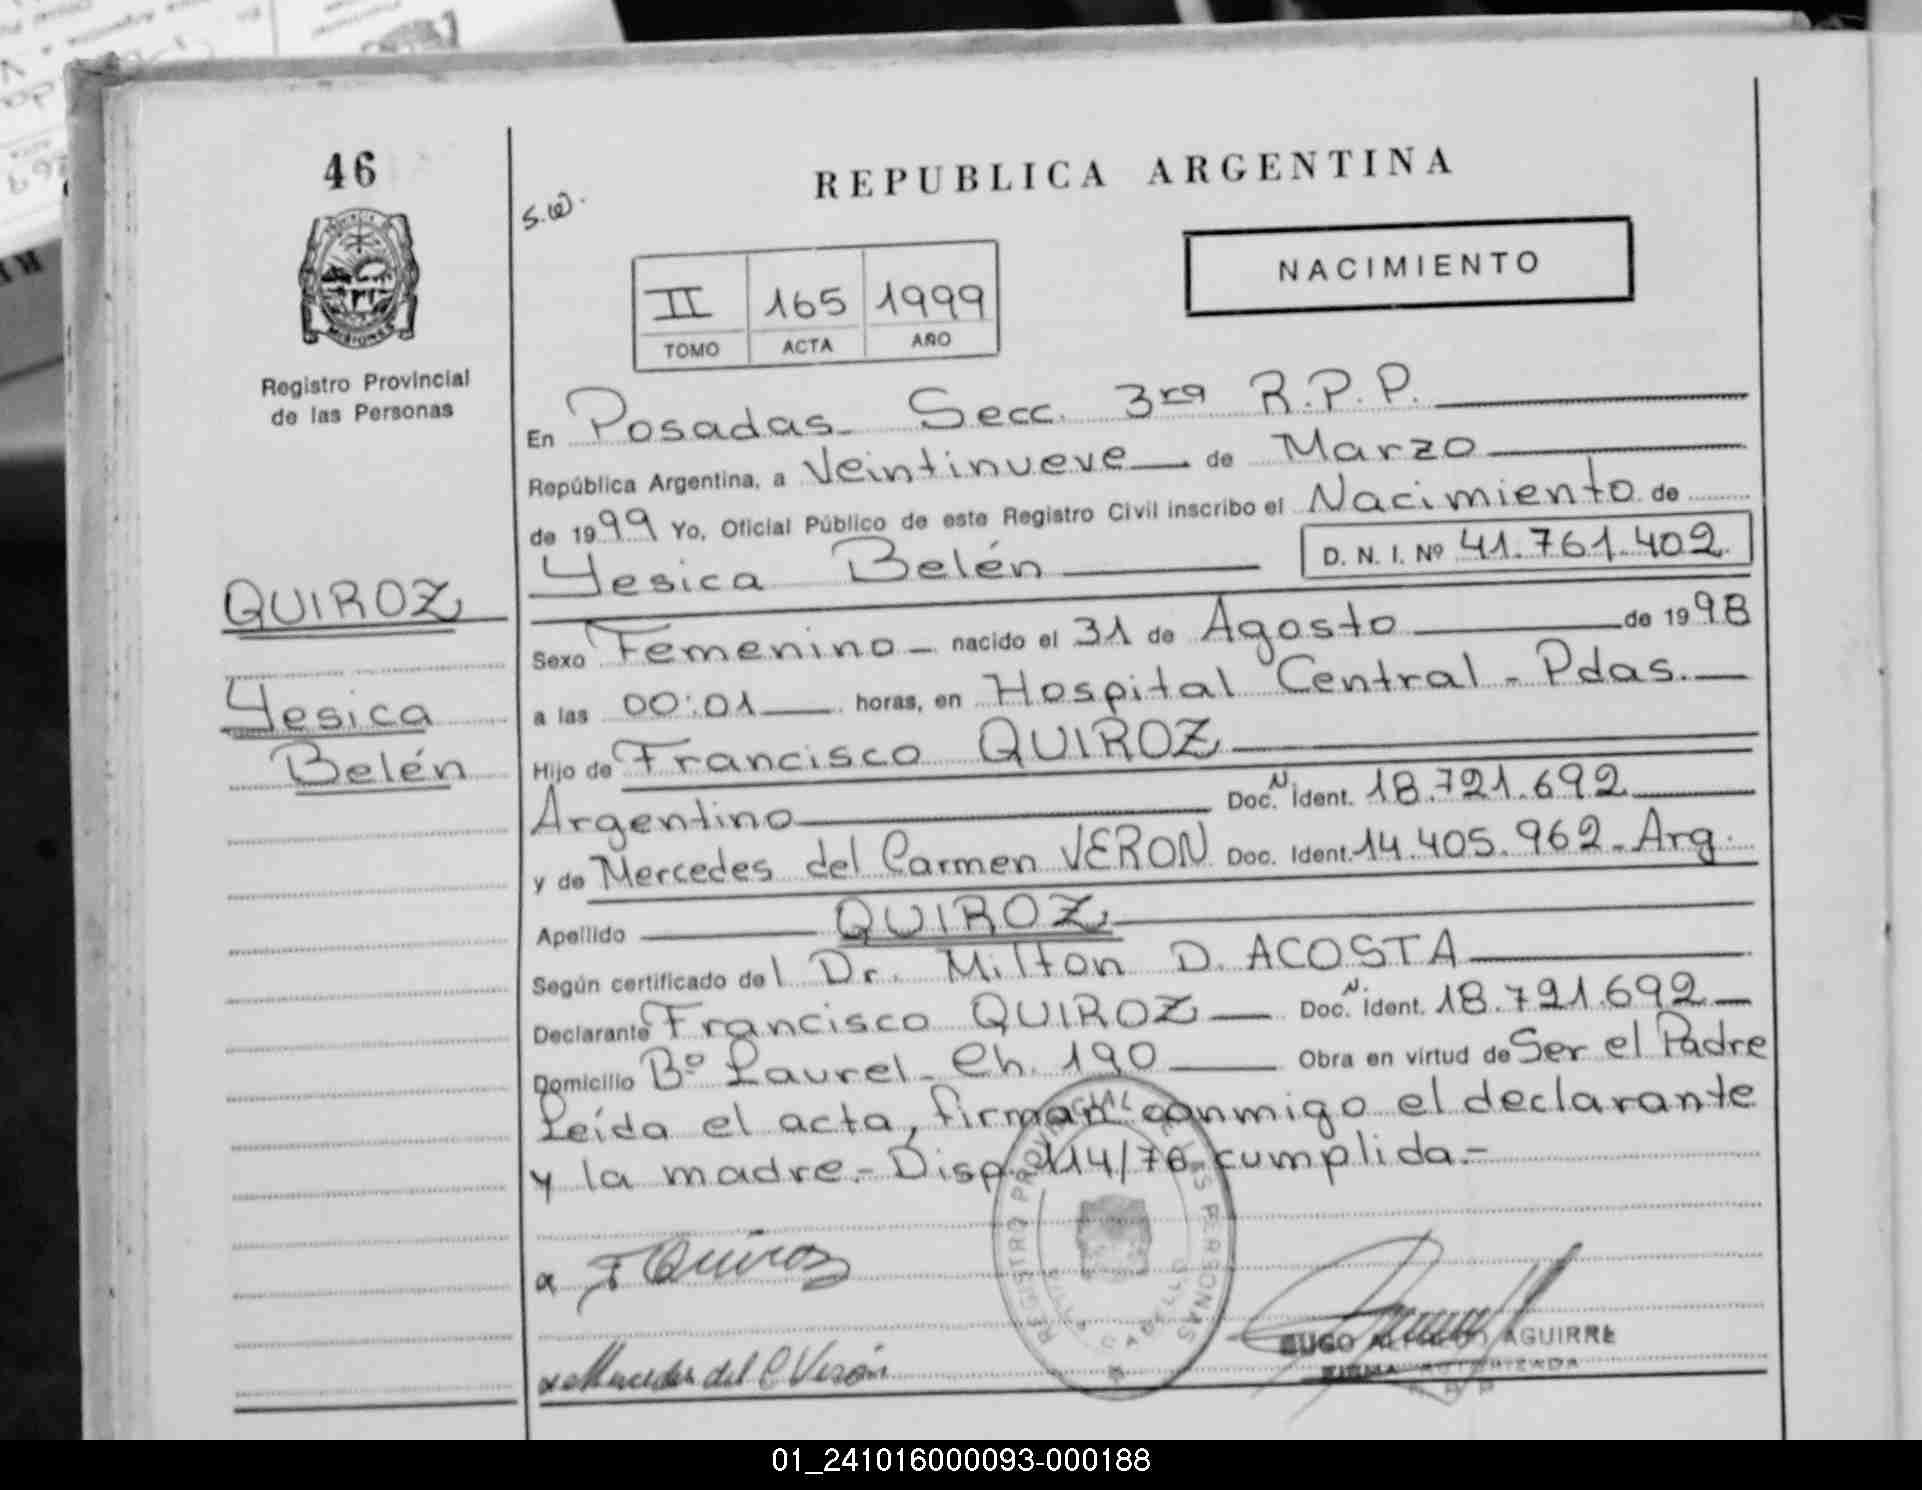 46
REPUBLICA ARGENTINA
NACIMIENTO
MISIONES
Registro Provincial
de las Personas
II 165 1999
TOMO ACTA AÑO
En Posadas - Secc. 3ra R.P.P.
República Argentina, a Veintinueve de Marzo
de 1999 Yo, Oficial Público de este Registro Civil inscribo el Nacimiento de
Yesica Belén D. N. I. Nº 41.761.402
QUIROZ
Yesica
Belén
Sexo Femenino - nacido el 31 de Agosto de 1998
a las 00:01 horas, en Hospital Central - Pdas.
Hijo de Francisco QUIROZ
Argentino Doc. N. Ident. 18.721.692
y de Mercedes del Carmen VERON Doc. Ident. 14.405.962 - Arg.
Apellido QUIROZ
Según certificado del Dr. Milton D. ACOSTA
Declarante Francisco QUIROZ Doc. N. Ident. 18.721.692
Domicilio Bº Laurel - Ch. 190 Obra en virtud de Ser el Padre
Leída el acta, firman conmigo el declarante
y la madre.- Disp. 114/76 cumplida.-
REGISTRO PROVINCIAL DE LAS PERSONAS
F Quiroz
Mercedes del C Verón
HUGO ALFREDO AGUIRRE
FIRMA AUTORIZADA
01_241016000093-000188